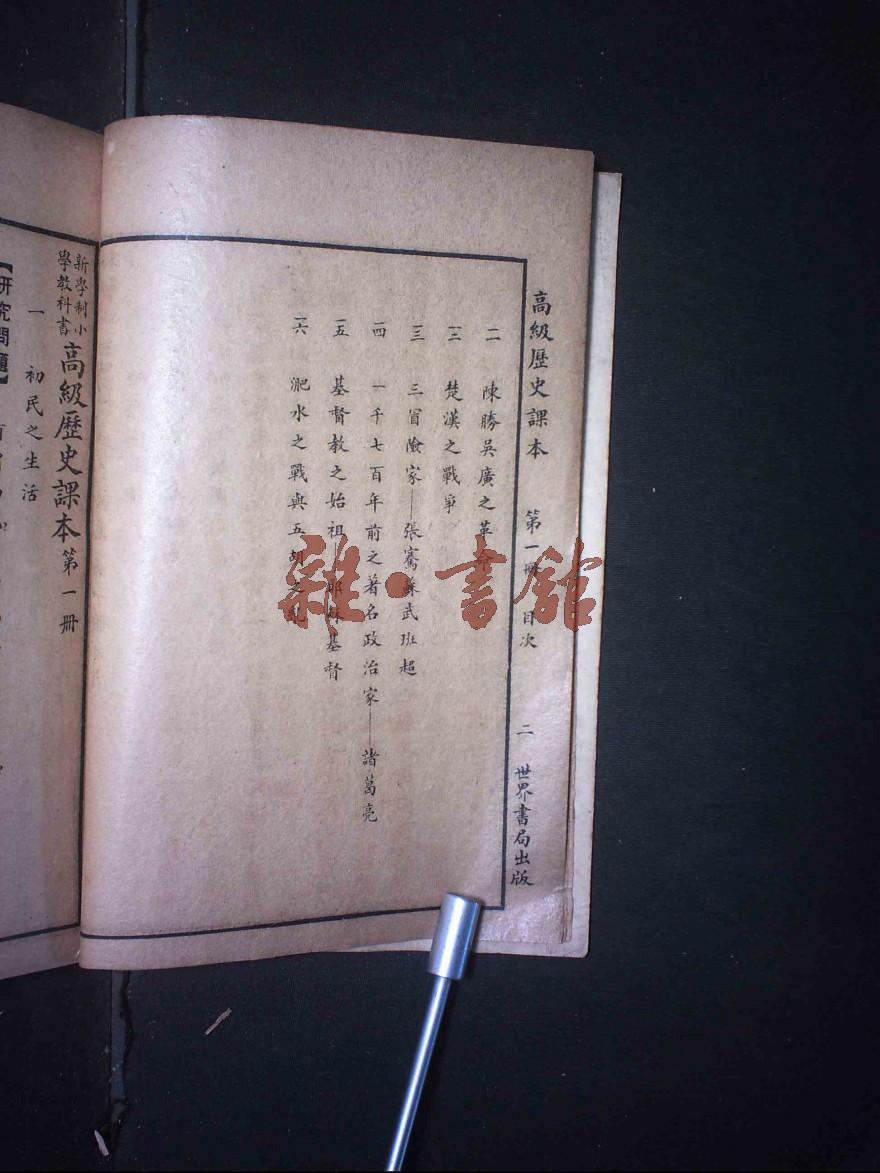 高級歷史課本 第一冊 目次 二 世界書局出版
一一 陳勝吳廣之革命
一二 楚漢之戰爭
一三 三冒險家——張騫蘇武班超
一四 一千七百年前之著名政治家——諸葛亮
一五 基督教之始祖——耶穌基督
一六 淝水之戰與五胡之亂
雜·書館
新學制小學教科書 高級歷史課本 第一冊
一 初民之生活
【研究問題】